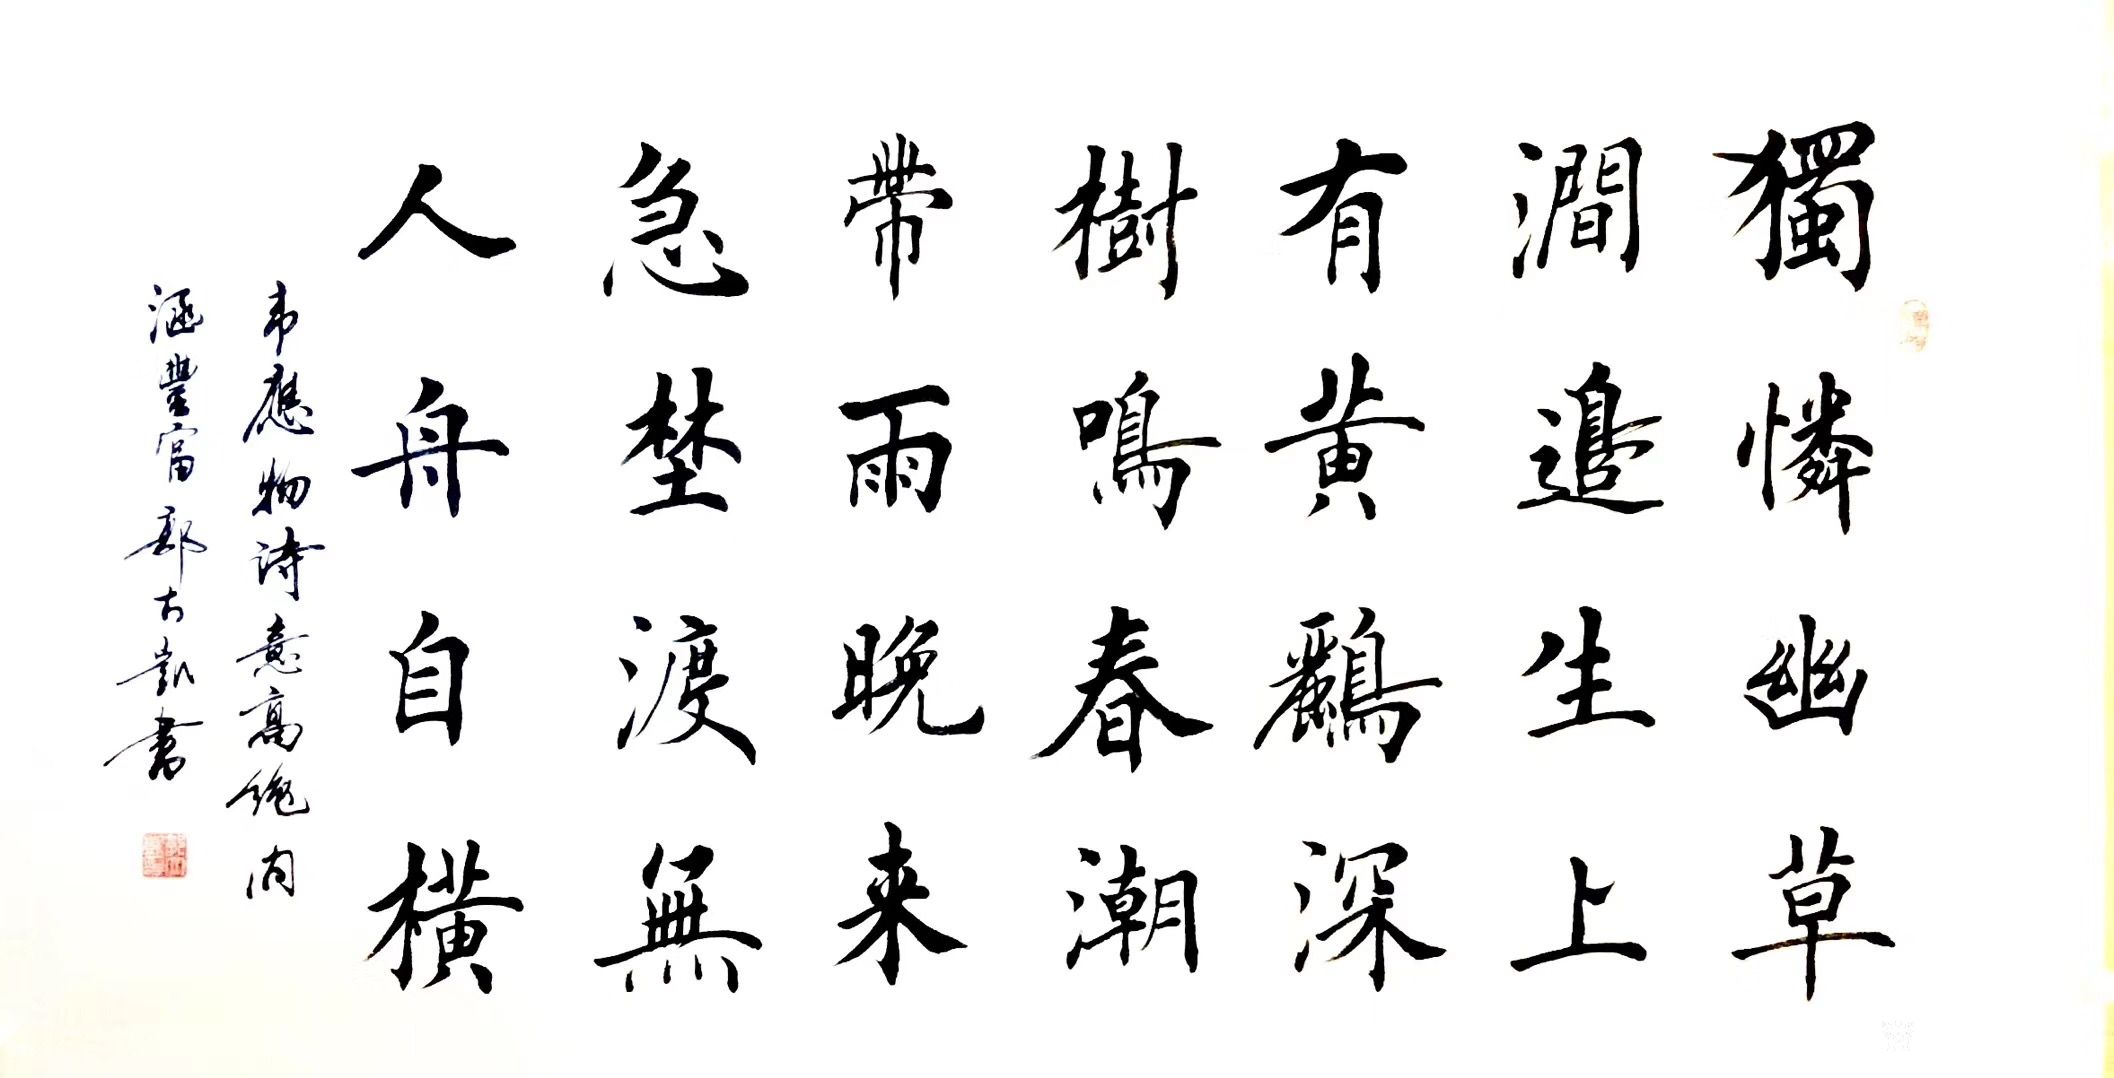 獨憐幽草
澗邊生上
有黄鸝深
樹鳴春潮
帶雨晚来
急埜渡無
人舟自横
韦應物诗意高绝内
涵豐富郭凱書